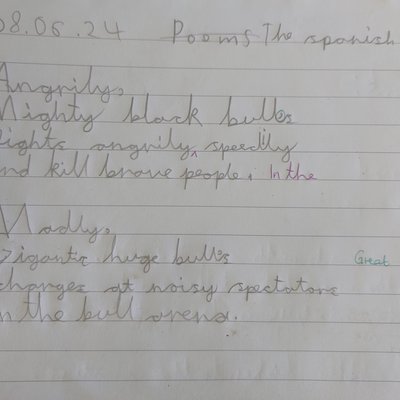 08.06.24 Pooms The spanish
Angrily,
Mighty black bulls
fights angrily, speedily
and kill brave people. In the
Madly,
Gigantic huge bulls
Great
charges at noisy spectators
in the bull arena.